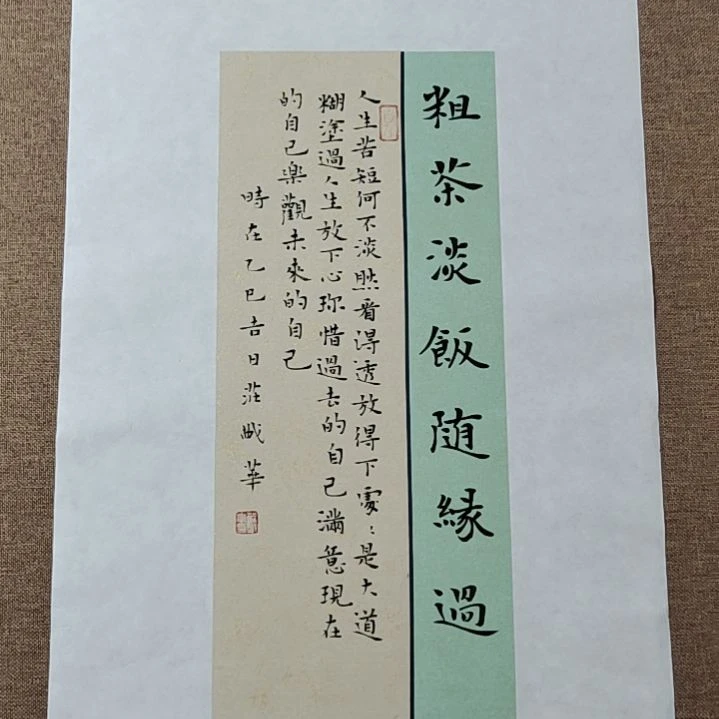 粗茶淡飯随緣過
人生苦短何不淡然看得透放得下處〻是大道
糊塗過人生放下心珎惜過去的自己滿意現在
的自己樂觀未來的自己
時在乙巳吉日莊戚華